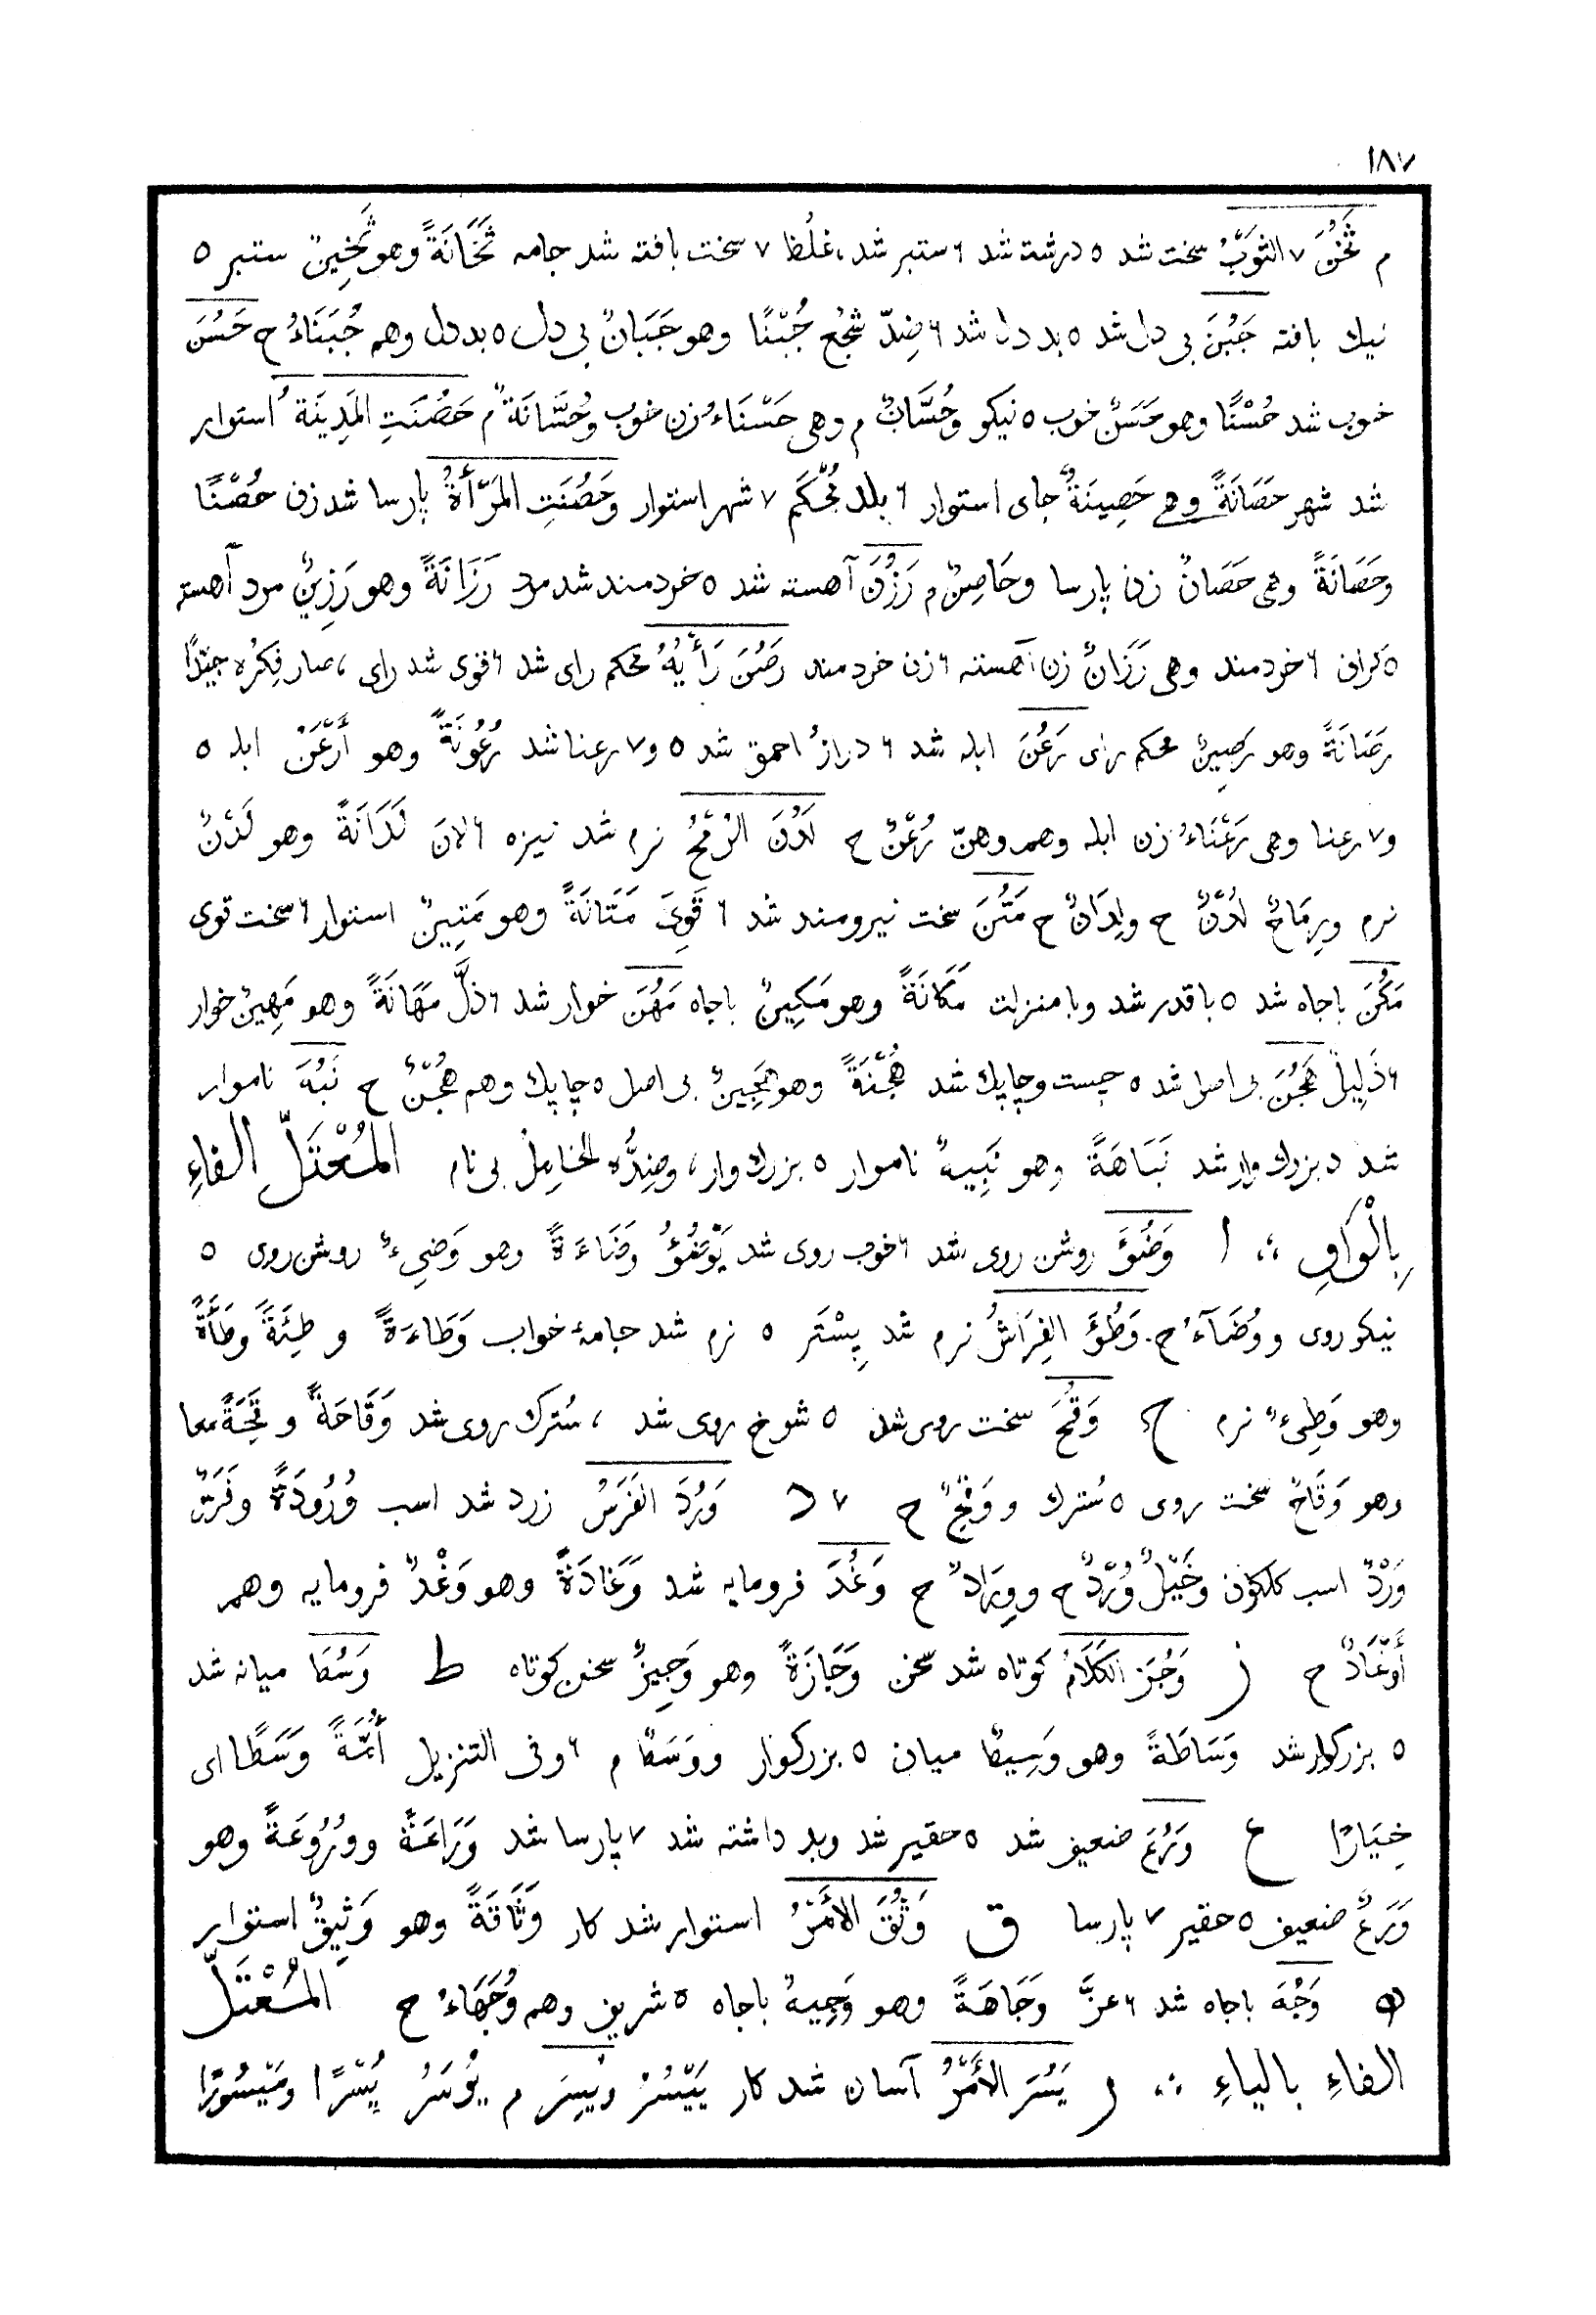 ١٨٧
م ثَخُنَ ٧ الثَّوْبُ سخت شد ٥ درشت شد ٦ ستبر شد، غلُظ ٧ سخت بافته شد جامه ثَخَانَةً وهو ثَخِينٌ ستبر ٥
نیك بافته جَبُنَ بی دل شد ٥ بد دل شد ٦ ضِدّ شَجُع جُبْنًا وهو جَبَانٌ بی دل ٥ بد دل وهم جُبَنَاءُ ح حَسُنَ
خوب شد حُسْنًا وهو حَسَنٌ خوب ٥ نیکو وحُسَّانٌ م وهی حَسْنَاءُ زن خوب وحُسَّانَةٌ م حَصُنَتِ المَدِينَةُ استوار
شد شهر حَصَانَةً وهی حَصِينَةٌ جای استوار ٦ بلد مُحْكَم ٧ شهر استوار وحَصُنَتِ المَرْأَةُ پارسا شد زن حُصْنًا
وحَصَانَةً وهی حَصَانٌ زن پارسا وحَاصِنٌ م رَزُنَ آهسته شد ٥ خردمند شد مرد رَزَانَةً وهو رَزِينٌ مرد آهسته
٥ گران ٦ خردمند وهی رَزَانٌ زن آهسته ٦ زن خردمند رَصُنَ رَأْيُهُ محکم رای شد ٦ قوی شد رای، صار فِكرُه جيّدًا
رَصَانَةً وهو رَصِينٌ محکم رای رَعُنَ ابله شد ٦ دراز احمق شد ٥ و٧ رعنا شد رُعُونَةً وهو أَرْعَنُ ابله ٥
و٧ رعنا وهی رَعْنَاءُ زن ابله وهم وهنّ رُعْنٌ ح لَدُنَ الرُّمْحُ نرم شد نیزه ٦ لانَ لَدَانَةً وهو لَدْنٌ
نرم ورِمَاحٌ لُدْنٌ ح ولِدَانٌ ح مَتُنَ سخت نیرومند شد ٦ قَوِیَ مَتَانَةً وهو مَتِينٌ استوار ٦ سخت قوی
مَكُنَ باجاه شد ٥ باقدر شد وبا منزلت مَكَانَةً وهو مَكِينٌ باجاه مَهُنَ خوار شد ٦ ذلَّ مَهَانَةً وهو مَهِينٌ خوار
٦ ذَلِيلٌ هَجُنَ بی اصل شد ٥ چست وچابك شد هُجْنَةً وهو هَجِينٌ بی اصل ٥ چابك وهم هُجُنٌ ح نَبُهَ ناموار
شد ٥ بزرك وار شد نَبَاهَةً وهو نَبِيهٌ ناموار ٥ بزرك وار، وضِدُّه الخَامِلُ بی نام المُعْتَلّ الفاءِ
بِالْوَاوِ ؞ ا وَضُؤَ روشن روی شد ٦ خوب روی شد يَوْضُؤُ وَضَاءَةً وهو وَضِيءٌ روشن روی ٥
نیکو روی و وُضَآءُ ح وَطُؤَ الفِرَاشُ نرم شد بِسْتَر ٥ نرم شد جامهٔ خواب وَطَاءَةً و طِئَةً وطَأَةً
وهو وَطِیءٌ نرم ح وَقُحَ سخت روی شد ٥ شوخ روی شد، سُترك روی شد وَقَاحَةً و قَحِةً معا
وهو وَقَاحٌ سخت روی ٥ سُترك و وَقِحٌ ح ٧ د وَرُدَ الفَرَسُ زرد شد اسب وُرُودَةً وفَرَسٌ
وَرْدٌ اسب گلگون وخَيْلٌ وُرْدٌ ح و وِرَادٌ ح وَغُدَ فرومایه شد وَغَادَةً وهو وَغْدٌ فرومایه وهم
أَوْغَادٌ ح ز وَجُزَ الكَلَامُ کوتاه شد سخن وَجَازَةً وهو وَجِيزٌ سخن کوتاه ط وَسُطَ میانه شد
٥ بزرگوار شد وَسَاطَةً وهو وَسِيطٌ میان ٥ بزرگوار و وَسَطٌ م ٦ وفی التنزیل أُمَّةً وَسَطًا ای
خِيَارًا ع وَرُعَ ضعیف شد ٥ حقیر شد وبد داشته شد ٧ پارسا شد وَرَاعَةً و وُرُوعَةً وهو
وَرَعٌ ضعیف ٥ حقیر ٧ پارسا ق وَثُقَ الأَمْرُ استوار شد کار وَثَاقَةً وهو وَثِيقٌ استوار
ه وَجُهَ باجاه شد ٦ عزَّ وَجَاهَةً وهو وَجِيهٌ باجاه ٥ شریف وهم وُجَهَاءُ ح المُعْتَلّ
الفاءِ بالياءِ ؞ ر يَسُرَ الأَمْرُ آسان شد کار يَيْسُرُ ويَسِرَ م يُوسَرُ يُسْرًا ومَيْسُورًا